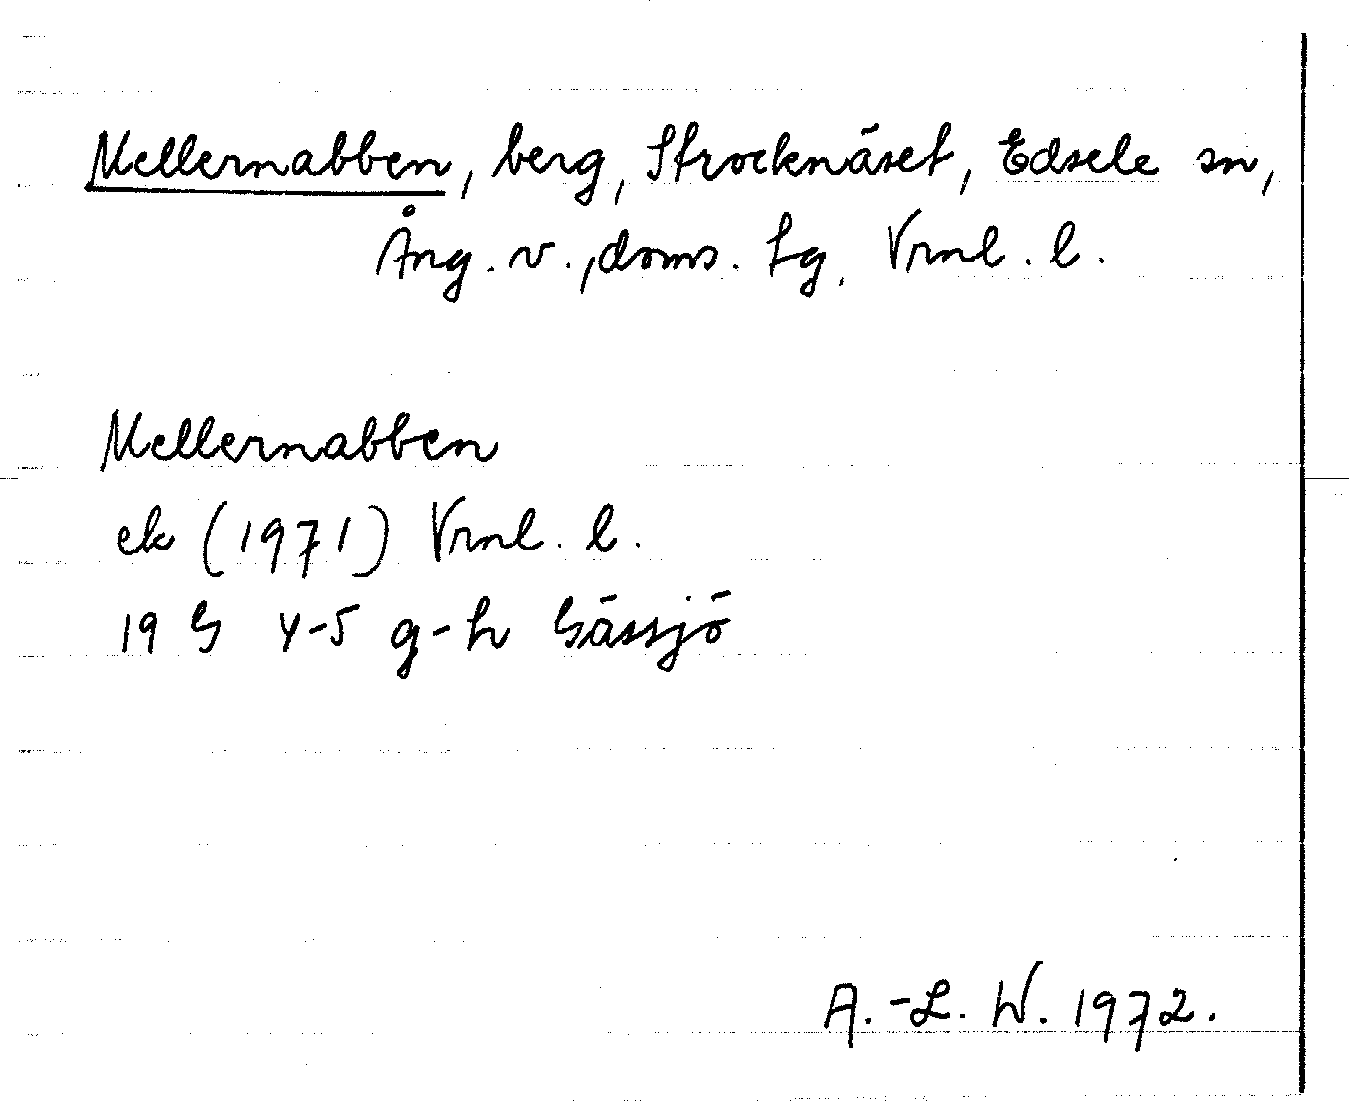 Mellernabben, berg, Strocknäset, Edsele sn,
Ång. v., doms. tg. Vrnl. l.
Mellernabben
ek (1971) Vrnl. l.
19 G 4-5 g-h Gåssjö
A.-L. W. 1972.